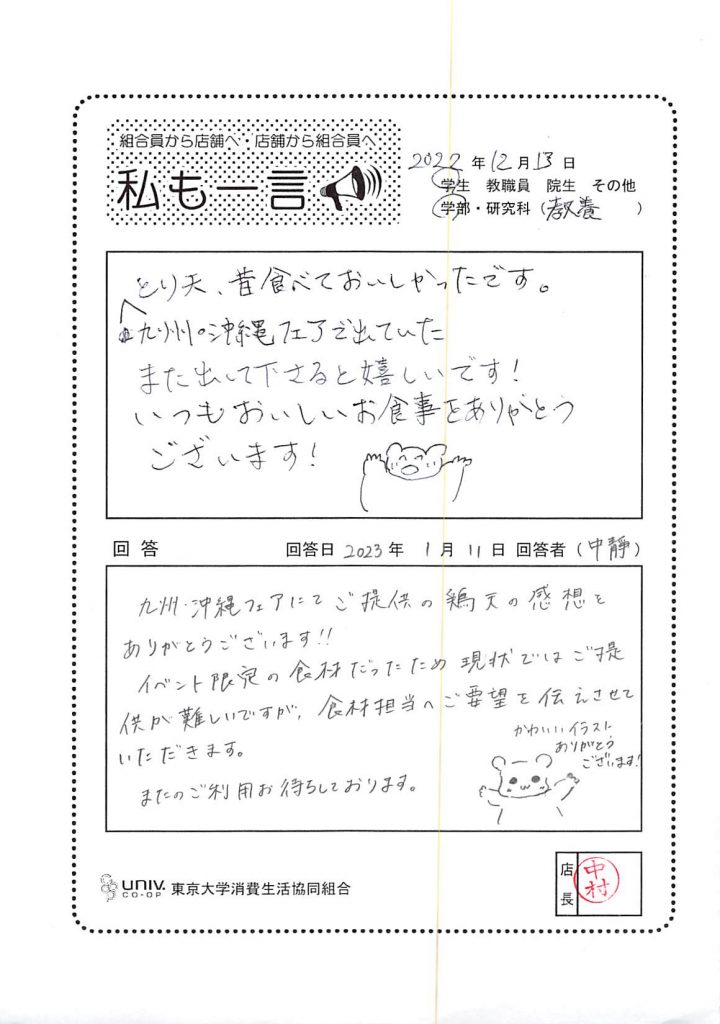 組合員から店舗へ・店舗から組合員へ
私も一言
2022年12月13日
学生 教職員 院生 その他
学部・研究科（教養）
とり天、昔食べておいしかったです。
九州・沖縄フェアで出ていた
また出して下さると嬉しいです！
いつもおいしいお食事をありがとう
ございます！
回答 回答日 2023年 1月11日 回答者（中靜）
九州・沖縄フェアにてご提供の鶏天の感想を
ありがとうございます!!
イベント限定の食材だったため現状ではご提
供が難しいですが、食材担当へご要望を伝えさせて
いただきます。
またのご利用お待ちしております。
かわいいイラスト
ありがとう
ございます！
UNIV. CO-OP 東京大学消費生活協同組合
店長
中村